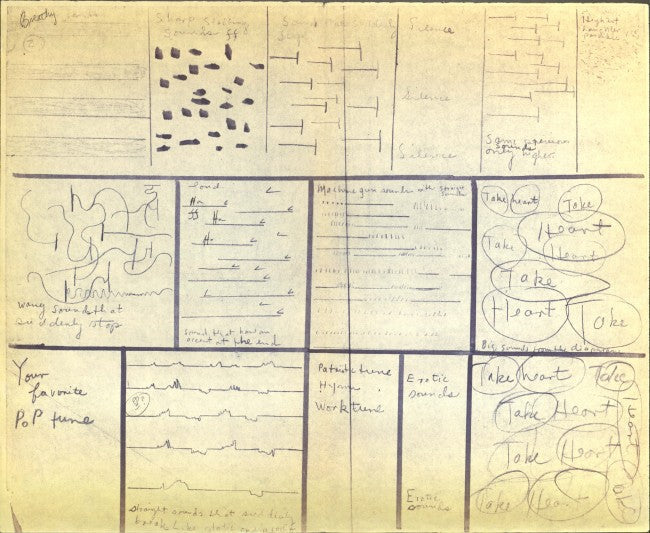 Breathy
Sharp Staccato
Sounds ff
Silence
Silence
Silence
Same
sounds
only higher
Highest
wavy sounds that
suddenly stop
Loud
sounds that have an
accent at the end
Machine gun sounds with straight
sounds
Take heart Take
Heart
Take Heart
Take
Heart Take
Big sounds from the diaphram
Your
favorite
PoP tune
straight sounds that suddenly
break like static
Patriotic tune
Hymn
Work tune
Erotic
sounds
Erotic
sounds
Take heart Take
Heart
Take Heart
Take Heart
Take Heart
Take